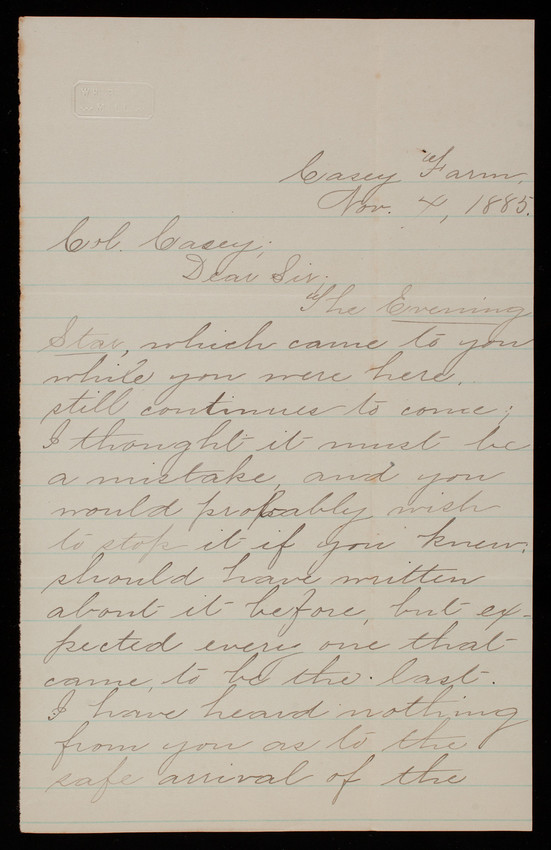 Casey Farm.
Nov. 4, 1885.
Col. Casey;
Dear Sir;
The Evening
Star, which came to you
while you were here,
still continues to come;
I thought it must be
a mistake, and you
would probably wish
to stop it if you knew.
should have written
about it before, but ex-
pected every one that
came, to be the last.
I have heard nothing
from you as to the
safe arrival of the